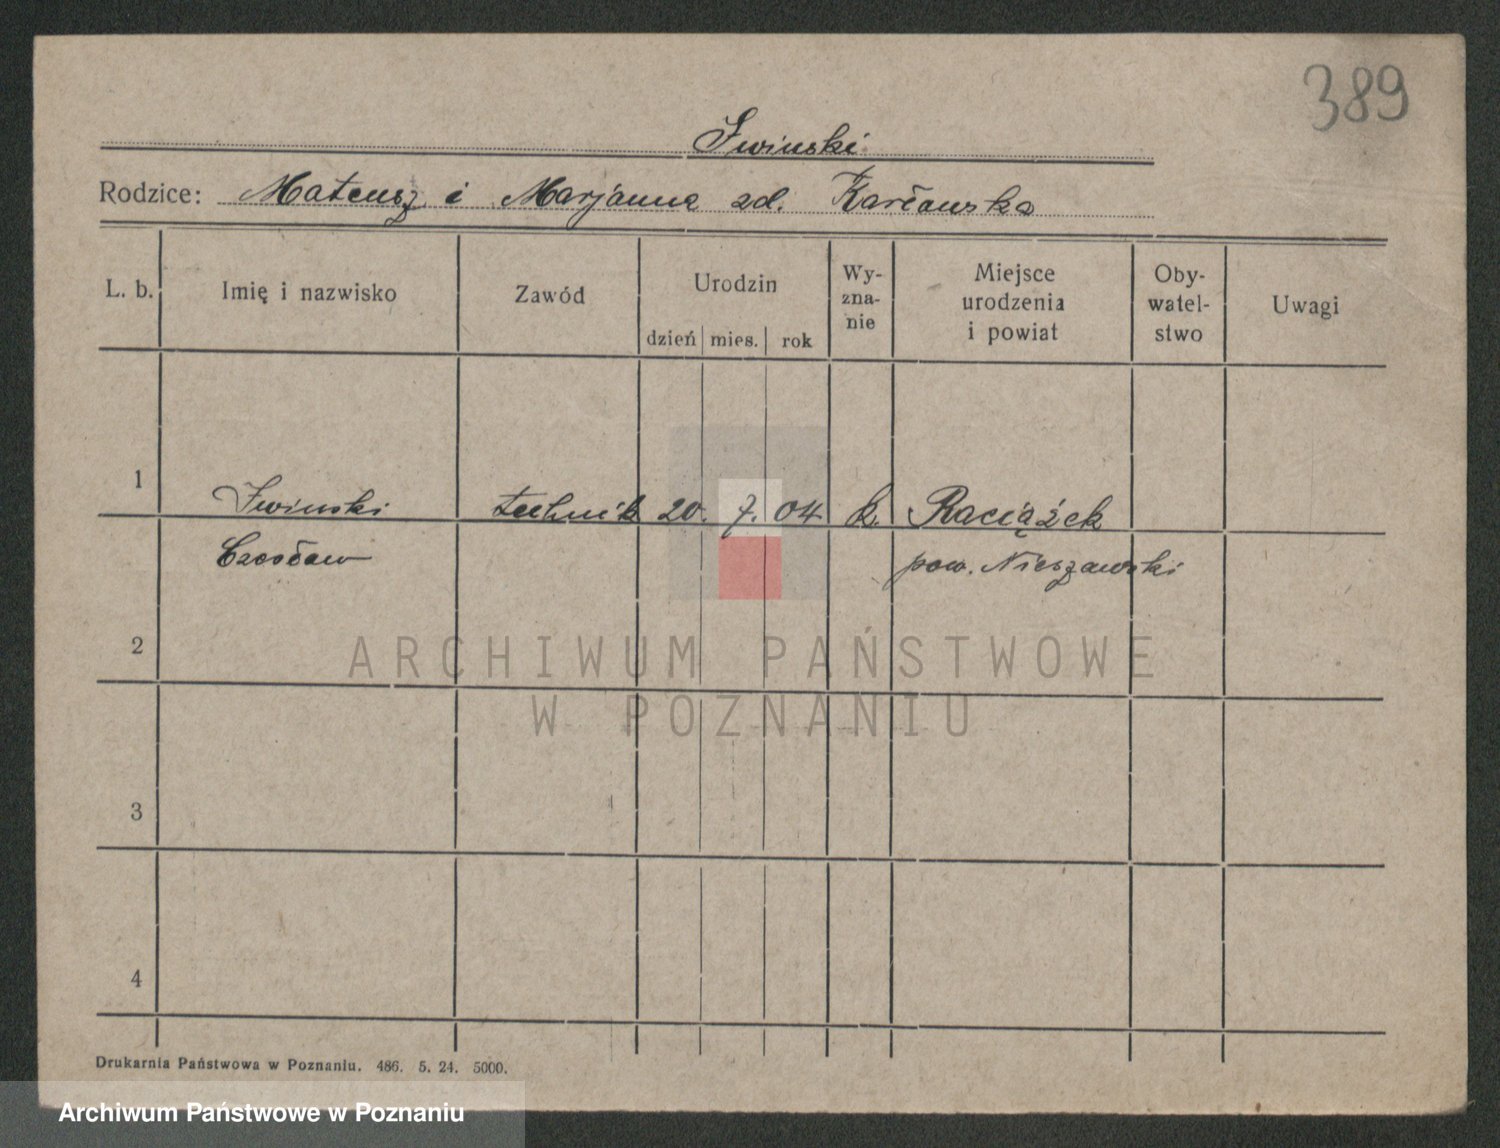 389
Iwinski
Rodzice: Mateusz i Marjanna zd. Karłowska
L. b. Imię i nazwisko Zawód Urodzin dzień mies. rok Wy-zna-nie Miejsce urodzenia i powiat Oby-watel-stwo Uwagi
1 Iwinski technik 20. 7. 04 k. Raciążek
Czesław pow. Nieszawski
2
3
4
ARCHIWUM PAŃSTWOWE
W POZNANIU
Drukarnia Państwowa w Poznaniu. 486. 5. 24. 5000.
Archiwum Państwowe w Poznaniu